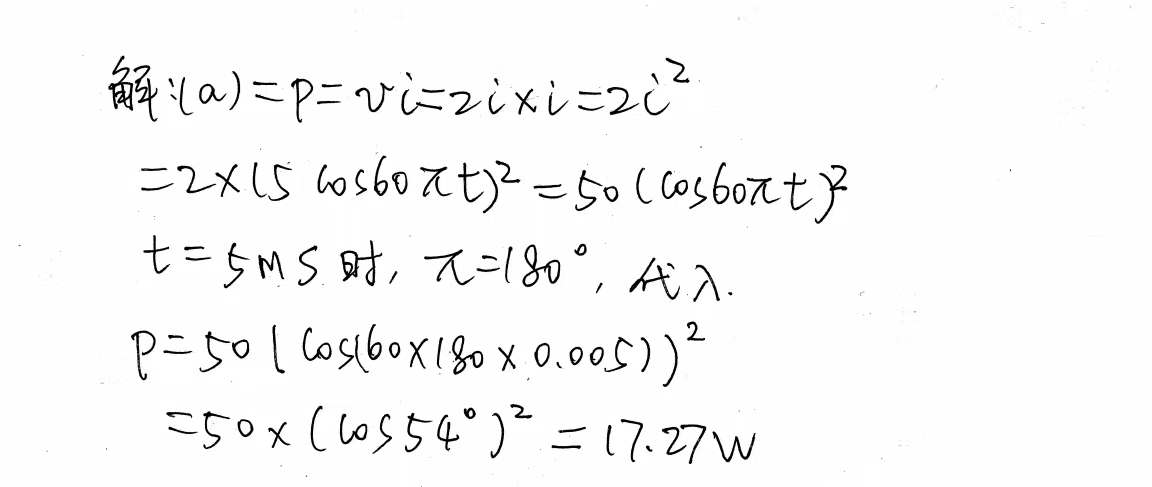 解:(a)=p=vi=2i×i=2i²
=2×(5 cos60πt)²=50(cos60πt)²
t=5MS时,π=180°,代入.
P=50(cos(60×180×0.005))²
=50×(cos54°)²=17.27W